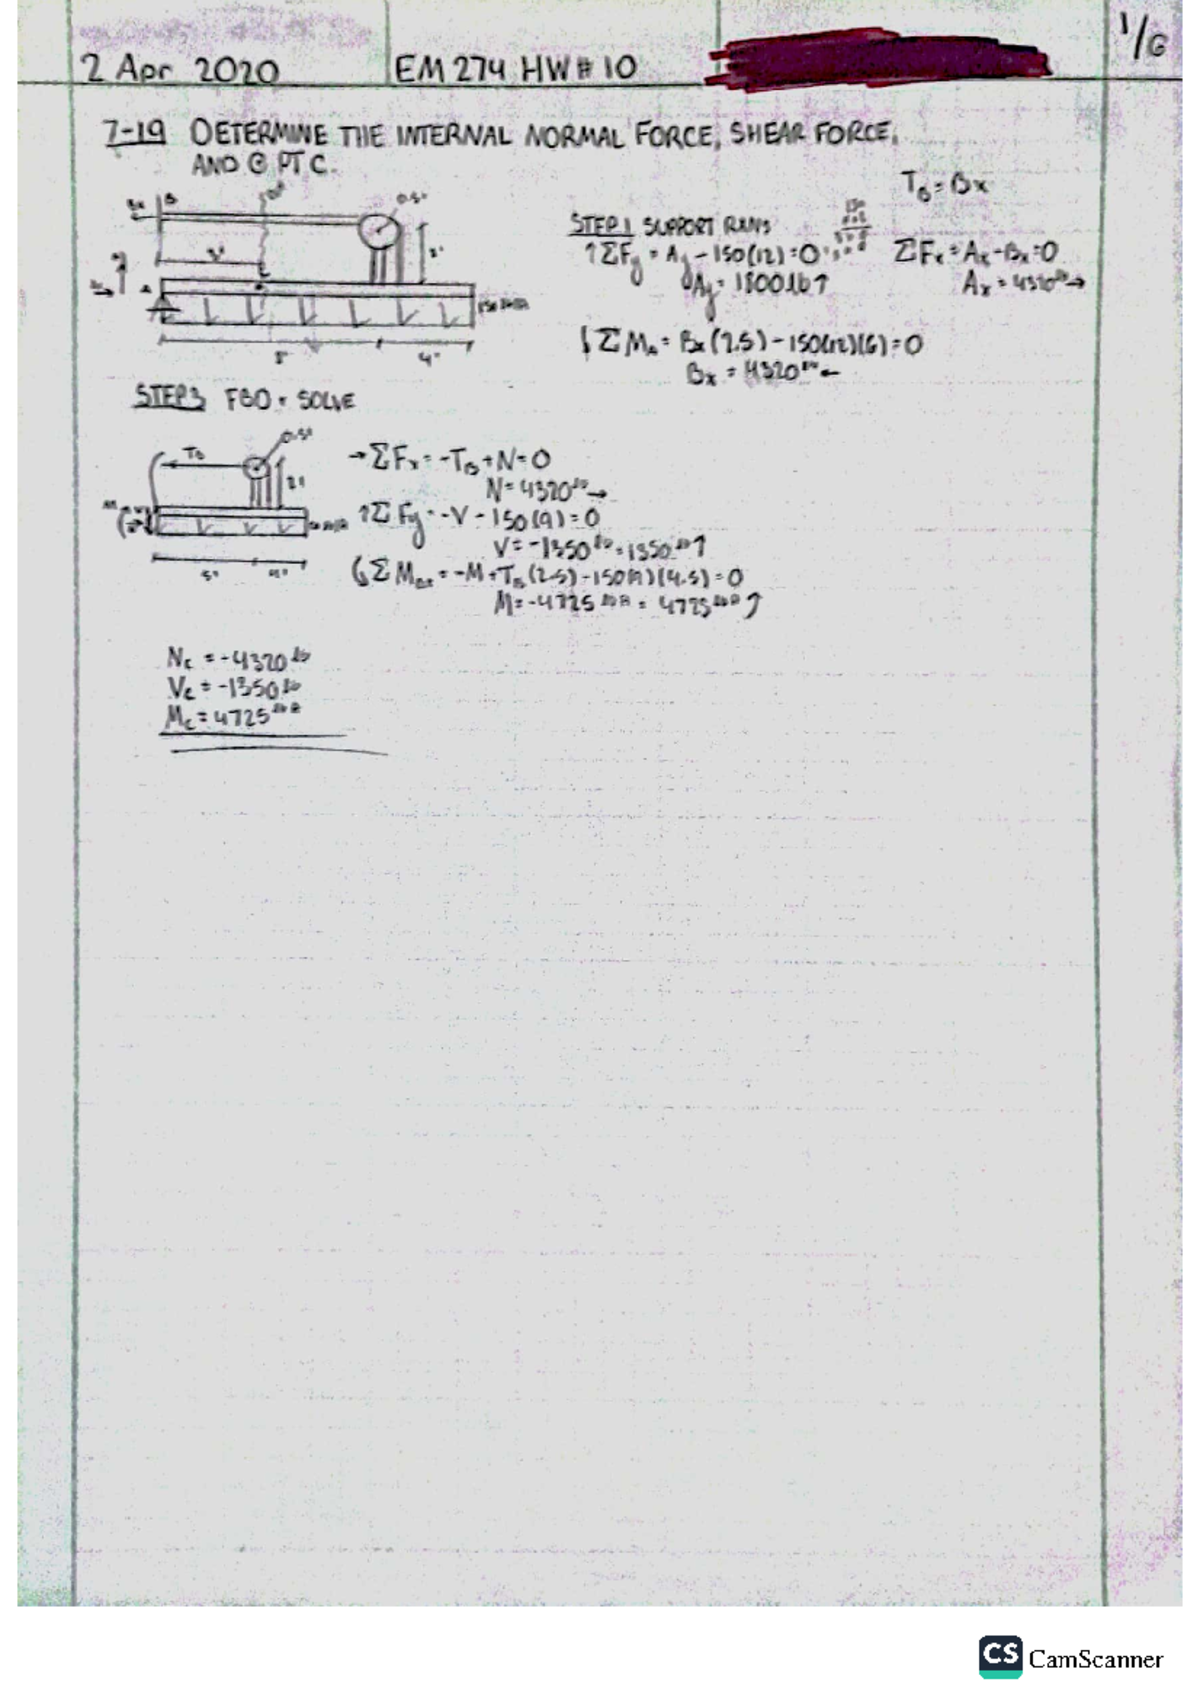 1/6
2 Apr 2020 EM 274 HW # 10
7-19 DETERMINE THE INTERNAL NORMAL FORCE, SHEAR FORCE,
AND @ PT C.
T_B = Bx
Bx B 0.5'
STEP 1 SUPPORT RXNS
↑ΣFy = Ay - 150(12) = 0
ΣFx = Ax - Bx = 0
Ay = 1800 lb ↑
Ax = 4320 lb →
3' 2'
A C
ΣM_A = Bx(2.5) - 150(12)(6) = 0
Bx = 4320 lb ←
4'
STEP 3 FBD + SOLVE
T_B 0.5'
→ΣFx = -T_B + N = 0
N = 4320 lb →
2'
↑ΣFy = -V - 150(9) = 0
V = -1350 lb = 1350 lb ↑
5' 4'
ΣM = -M + T_B(2.5) - 150(9)(4.5) = 0
M = -4725 = 4725
Nc = -4320 lb
Vc = -1350 lb
Mc = 4725 lb ft
CS CamScanner